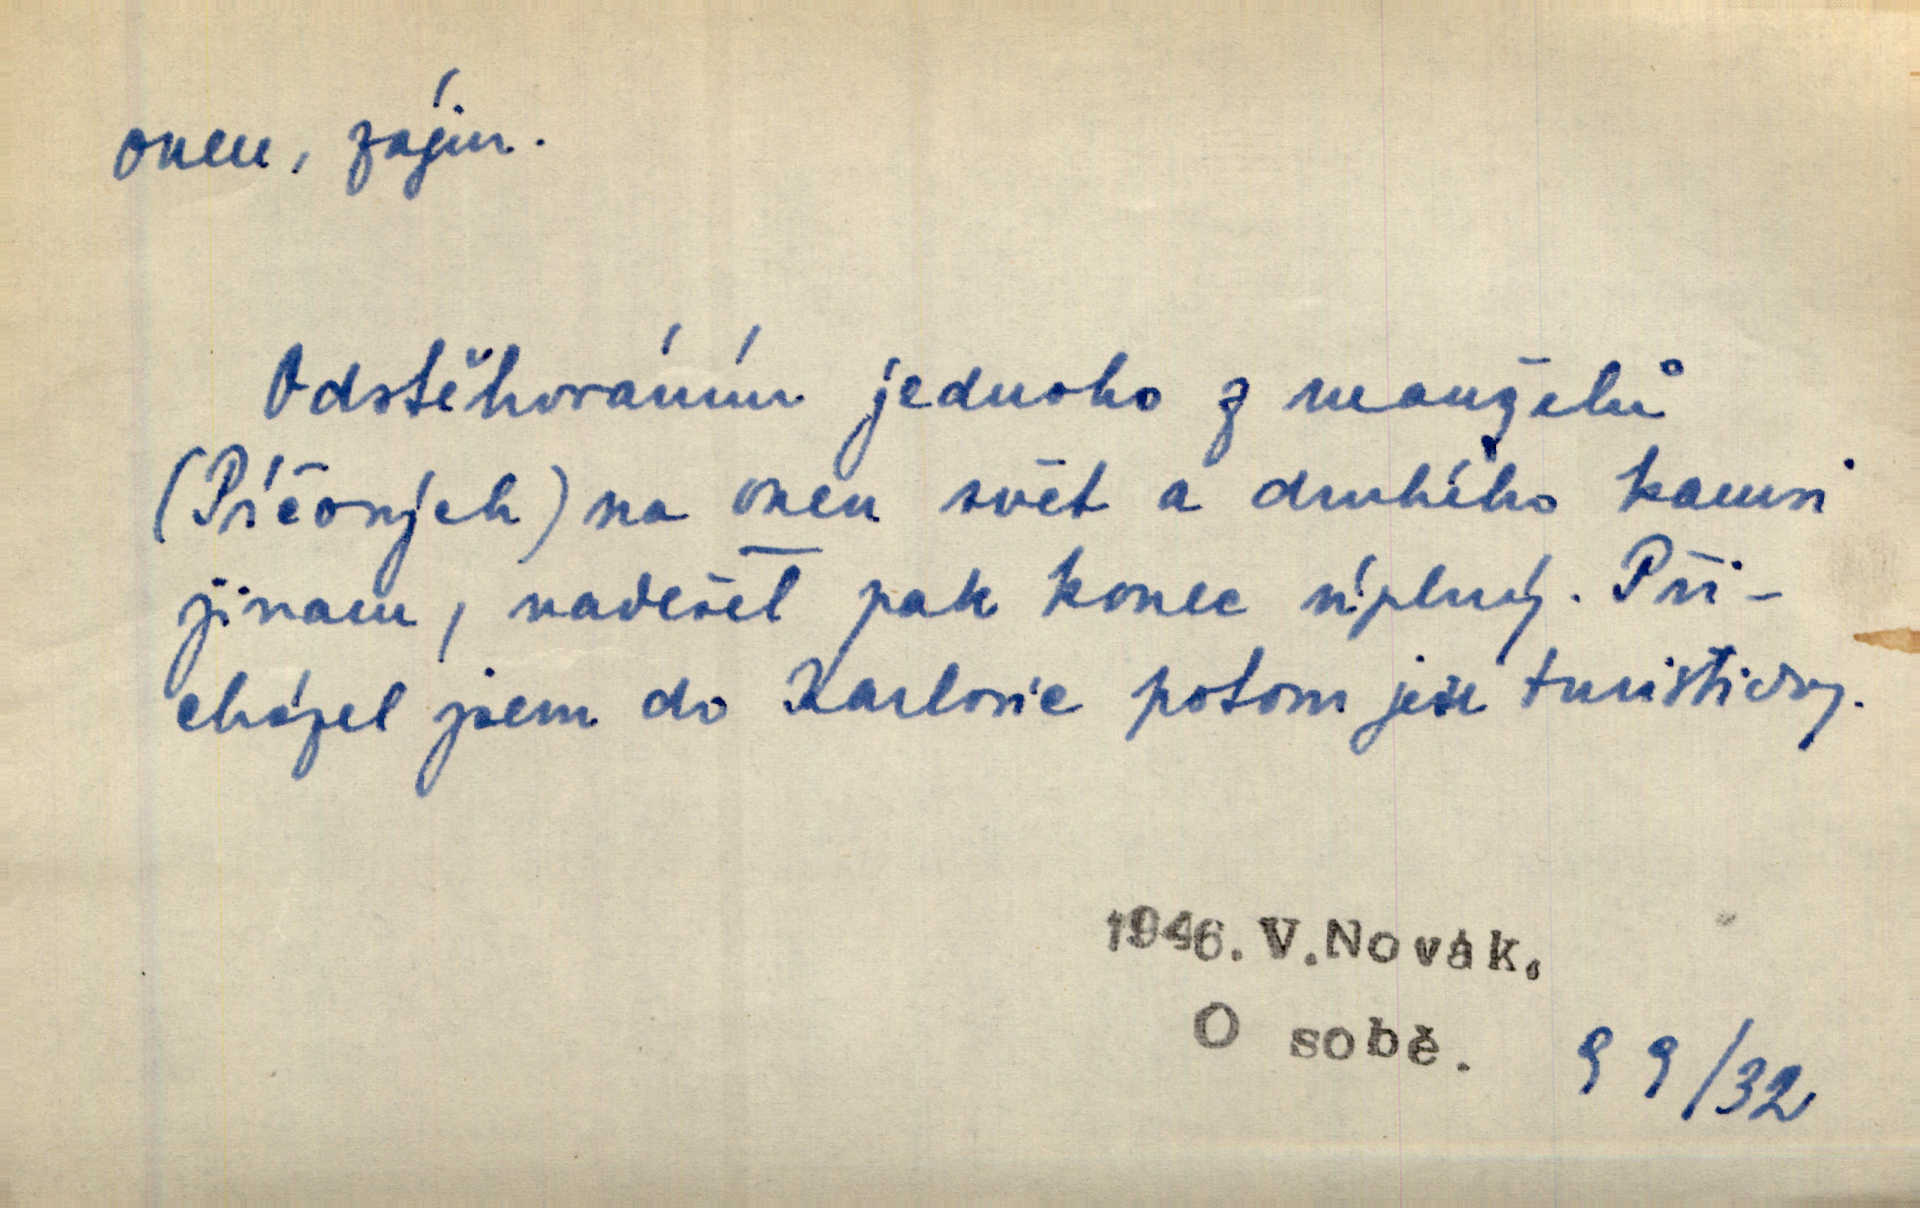 onen, zájm.
Odstěhováním jednoho z manželů
(Píčových) na onen svět a druhého kamsi
jinam, nadešel pak konec úplný. Při-
cházel jsem do Karlovic potom jen turisticky.
1946. V. Novák.
O sobě. 99/32